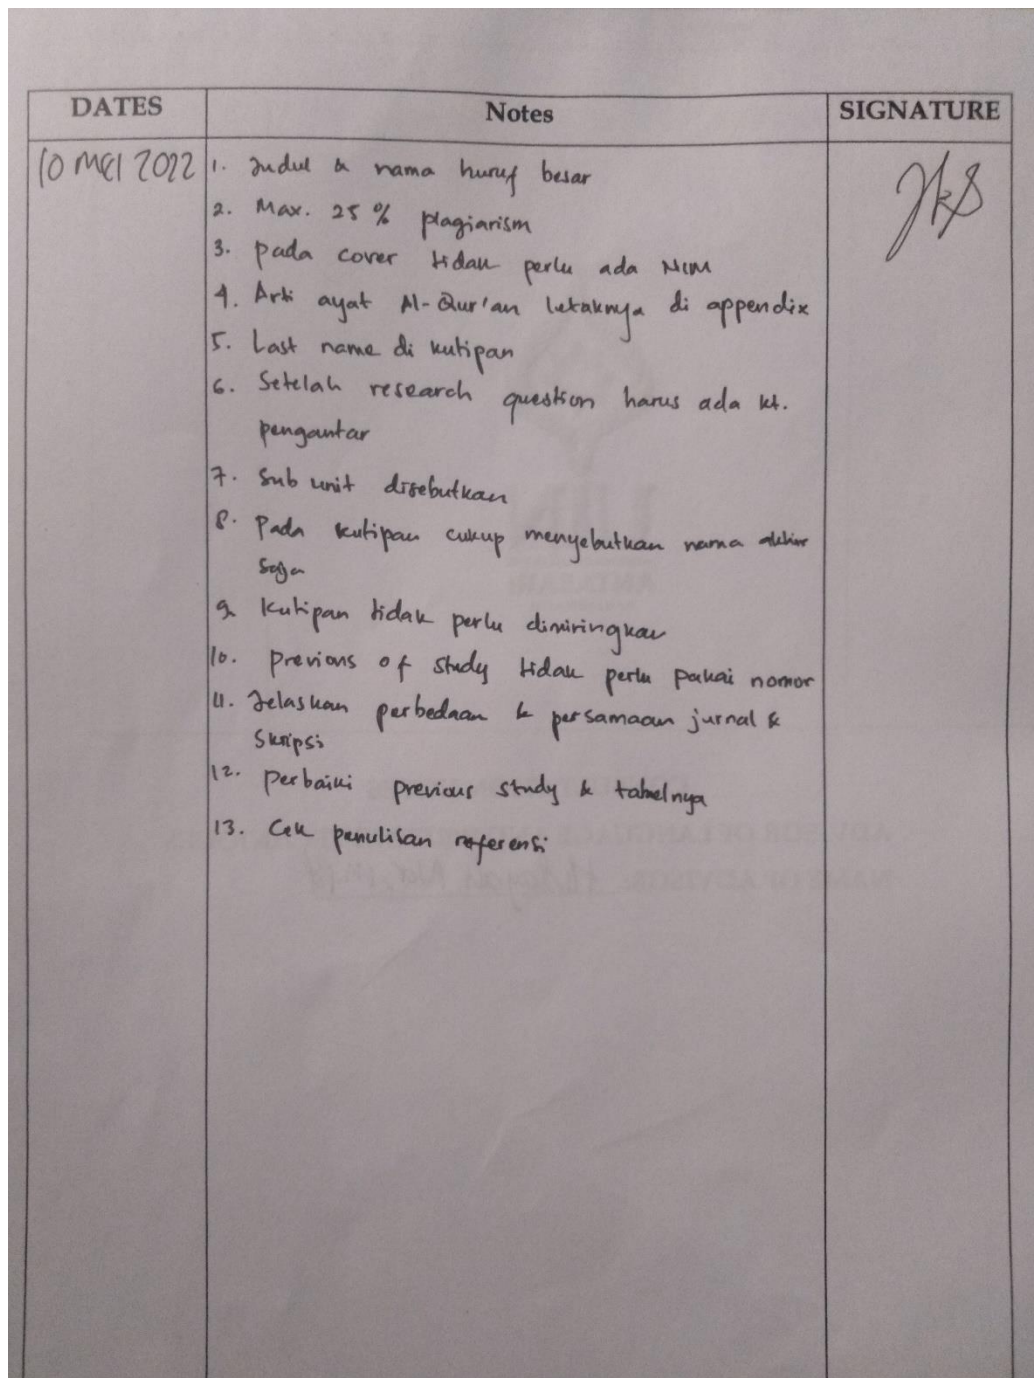 DATES Notes SIGNATURE
10 MEI 2022
1. Judul & nama huruf besar
2. Max. 25 % plagiarism
3. pada cover tidak perlu ada NIM
4. Arti ayat Al-Qur'an letaknya di appendix
5. Last name di kutipan
6. Setelah research question harus ada kt.
pengantar
7. Sub unit disebutkan
8. Pada kutipan cukup menyebutkan nama akhir
saja
9. Kutipan tidak perlu dimiringkan
10. Previous of study tidak perlu pakai nomor
11. Jelaskan perbedaan & persamaan jurnal &
Skripsi
12. Perbaiki previous study & tabelnya
13. Cek penulisan referensi